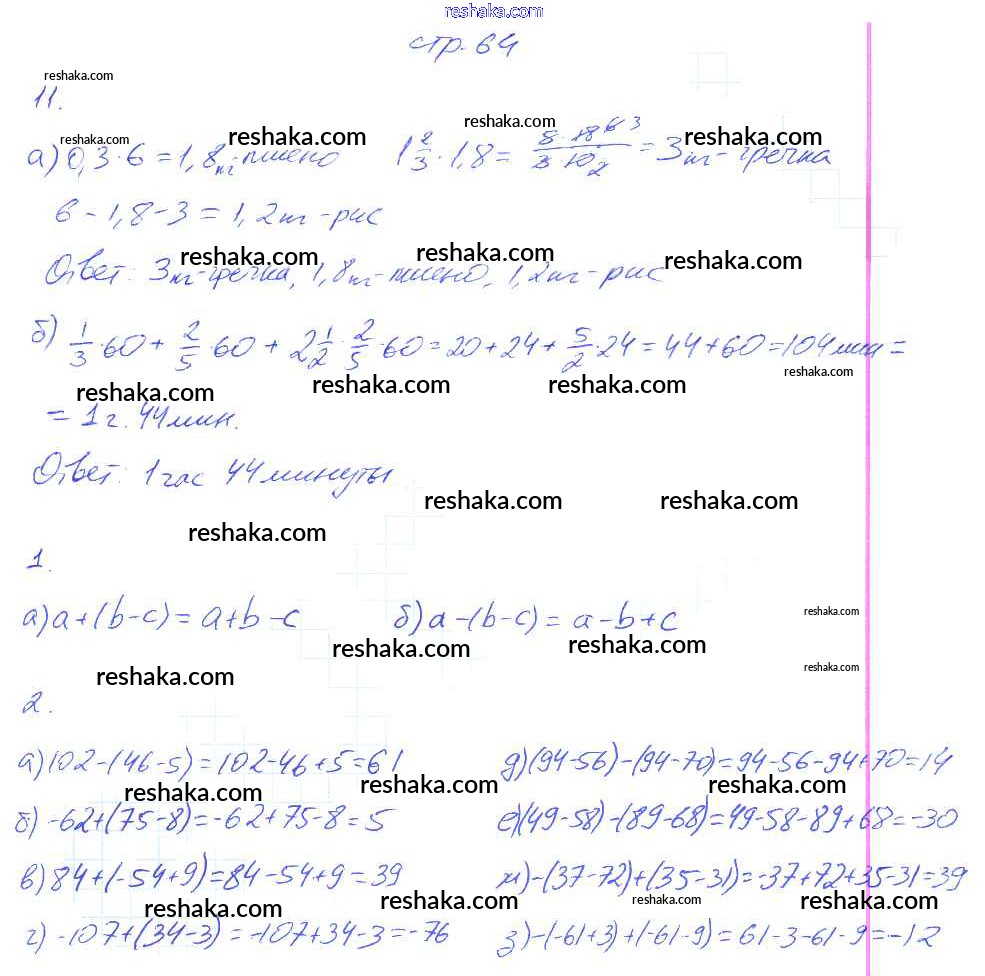 reshaka.com
стр. 64
reshaka.com
11.
reshaka.com reshaka.com reshaka.com reshaka.com
а) 0,3·6=1,8кг-пшено 1 2/3·1,8= 5·18 6 3/3·10 2 =3кг-гречка
6-1,8-3=1,2кг-рис
reshaka.com reshaka.com reshaka.com
Ответ: 3кг-гречка, 1,8кг-пшено, 1,2кг-рис
б) 1/3·60+2/5·60+2 1/2·2/5·60=20+24+5/2·24=44+60=104мин=
reshaka.com reshaka.com reshaka.com reshaka.com
=1ч.44мин.
Ответ: 1час 44минуты
reshaka.com reshaka.com reshaka.com
1.
а) a+(b-c)=a+b-c б) a-(b-c)=a-b+c
reshaka.com
reshaka.com reshaka.com reshaka.com reshaka.com
2.
а) 102-(46-5)=102-46+5=61 д) (94-56)-(94-70)=94-56-94+70=14
reshaka.com reshaka.com reshaka.com
б) -62+(75-8)=-62+75-8=5 е) (49-58)-(89-68)=49-58-89+68=-30
в) 84+(-54+9)=84-54+9=39 ж) -(37-72)+(35-31)=-37+72+35-31=39
reshaka.com reshaka.com reshaka.com reshaka.com
г) -107+(34-3)=-107+34-3=-76 з) -(-61+3)+(-61-9)=61-3-61-9=-12